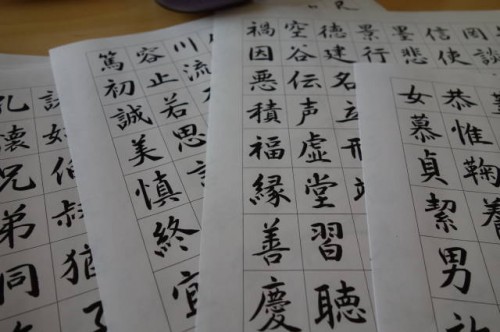 恭惟鞠養
女慕貞絜男
罔談
信使
墨悲
景行
徳建名立形
空谷伝声虚堂習聴
禍因悪積福縁善慶
川流
容止若思
篤初誠美慎終宜
姑伯叔猶子
孔懐兄弟同